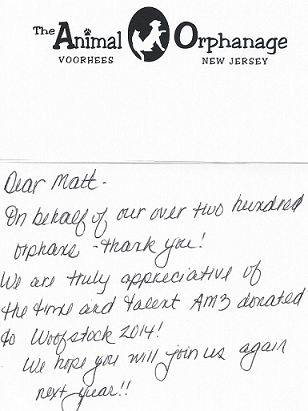 The Animal Orphanage
VOORHEES NEW JERSEY
Dear Matt -
On behalf of our over two hundred
orphans - thank you!
We are truly appreciative of
the time and talent AM3 donated
to Woofstock 2014!
We hope you will join us again
next year!!